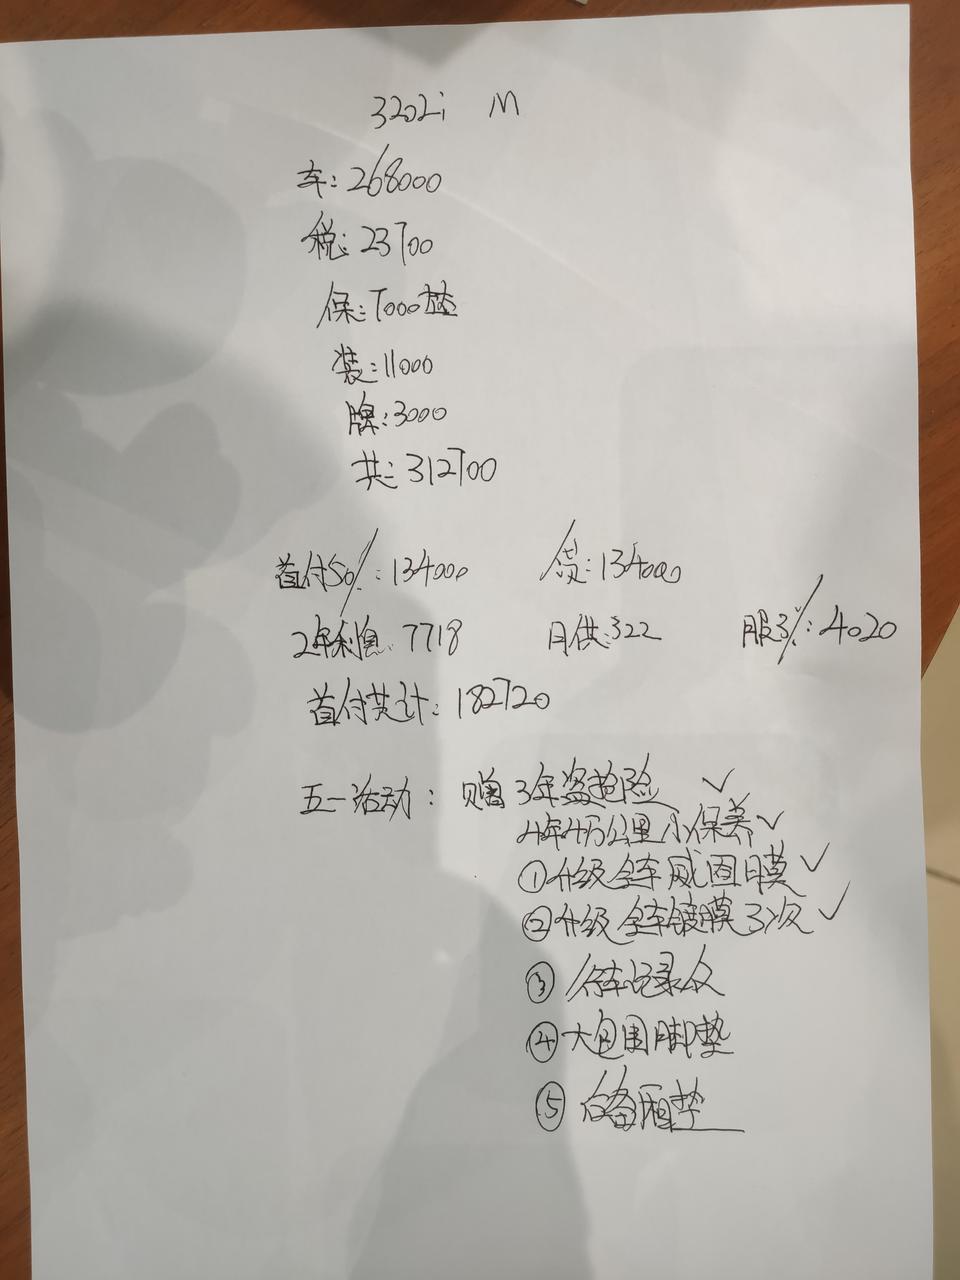 3202i M
车:268000
税:23700
保:7000
装:11000
牌:3000
共:312700
首付50%:134000 贷:134000
2年利息:7718 月供:322 服3%:4020
首付共计:182720
五一活动:赠3年盗抢险 ✓
4年4万公里小保养 ✓
①升级全车威固膜 ✓
②升级全车镀膜3次 ✓
③行车记录仪
④大包围脚垫
⑤后备厢垫